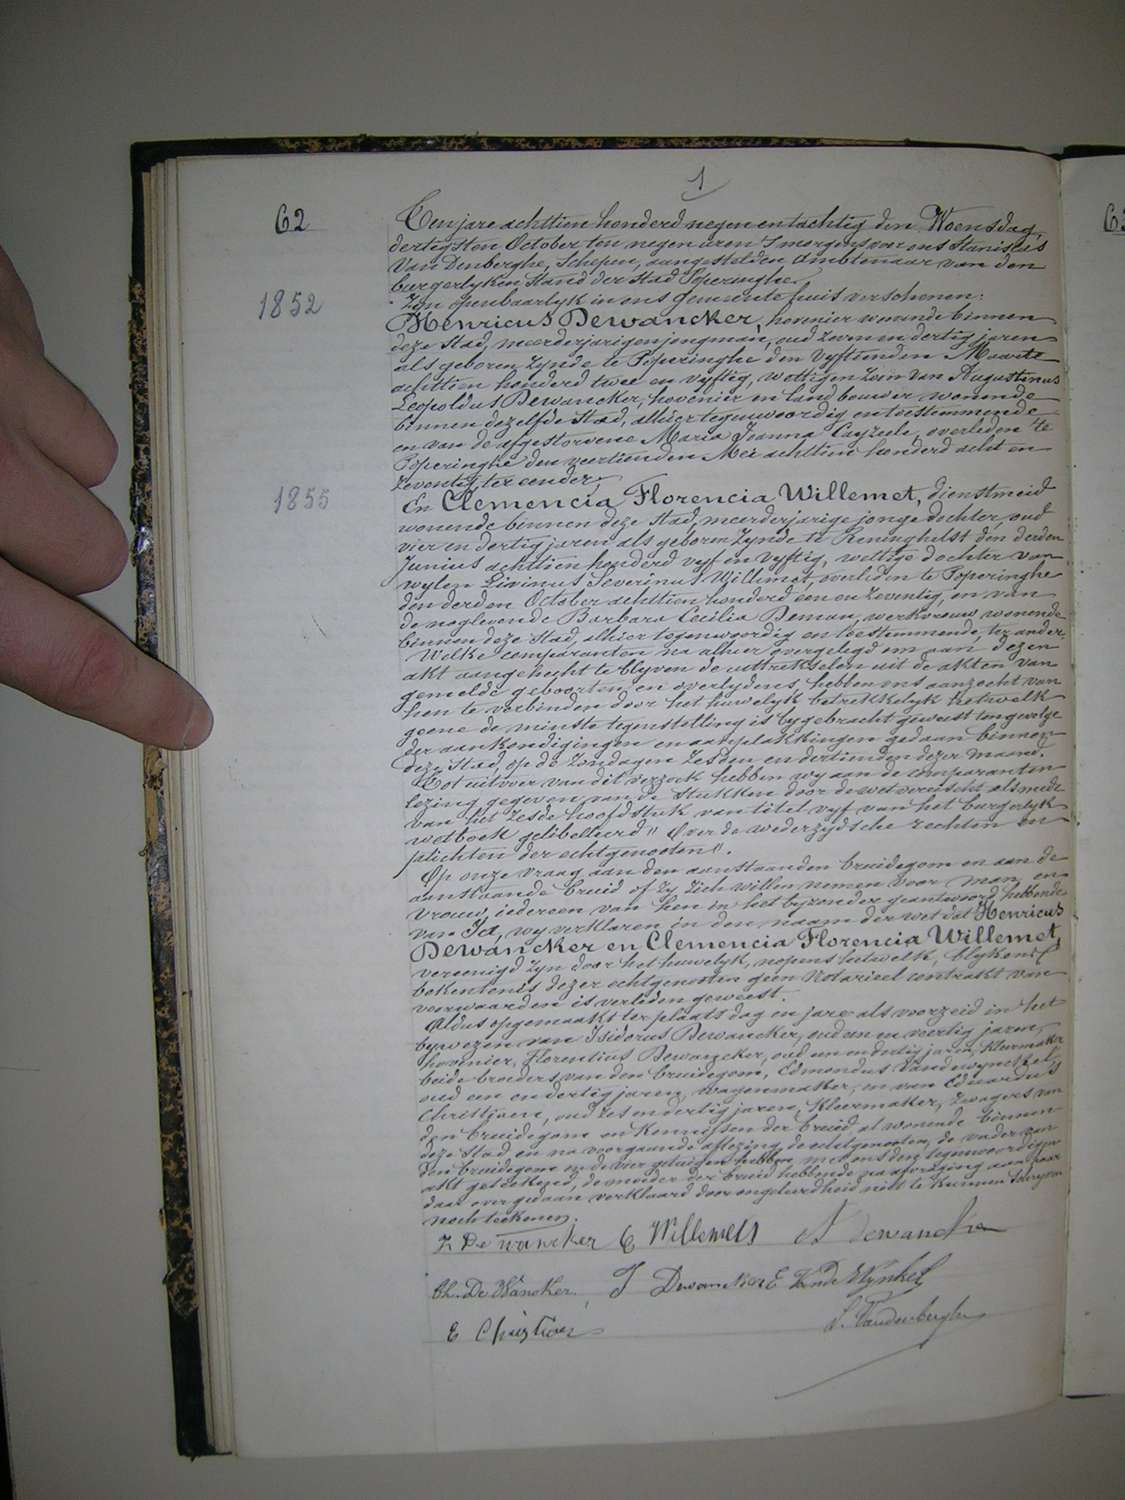 1
62
Ten jare achttien honderd negen en tachtig den Woensdag,
dertigsten October ten negen uren 's morgens voor ons Stanislas
Van Denberghe, Schepen, aangestelden Ambtenaar van den
burgerlyken Stand der Stad Poperinghe
Zyn openbaarlyk in ons gemeentehuis verschenen:
1852
Henricus Dewancker, hovenier wonende binnen
deze Stad, meerderjarigen jongman, oud Zeven en dertig jaren
als geboren Zynde te Poperinghe den vyftienden Maarte
achttien honderd twee en vyftig, wettigen Zoon van Augustinus
Leopoldus Dewancker, hovenier en landbouwer wonende
binnen dezelfde Stad, alhier tegenwoordig en toestemmende
en van de afgestorvene Maria Joanna Cayzeele, overleden te
Poperinghe den veertienden Mei achttien honderd acht en
Zeventig, ter eender;
1855
En Clemencia Florencia Willemet, dienstmeid
wonende binnen deze Stad, meerderjarige jonge dochter, oud
vier en dertig jaren als geboren Zynde te Reninghelst den derden
Junius achttien honderd vyf en vyftig, wettige dochter van
wylen Livinus Severinus Willemet, overleden te Poperinghe
den derden October achttien honderd een en Zeventig, en van
de noglevende Barbara Cecilia Deman, werkvrouw wonende
binnen deze Stad, alhier tegenwoordig en toestemmende, ter ander.
Welke comparanten na alhier overgelegd om aan dezen
akt aangehecht te blyven de uittrekselen uit de akten van
gemelde geboorten en overlydens, hebben ons aanzocht van
hen te verbinden door het huwelyk betrekkelyk hetwelk
geene de minste tegenstelling is bygebracht geweest tengevolge
der aankondigingen en aanplakkingen gedaan binnen
deze Stad, op de Zondagen Zesden en dertienden dezer maand.
Tot uitvoer van dit verzoek hebben wy aan de comparanten
lezing gegeven van de Stukken door de wet vereischt alsmede
van het Zesde hoofdstuk van titel vyf van het burgerlyk
wetboek gelibelleerd " Over de wederzydsche rechten en
plichten der echtgenooten".
Op onze vraag aan den aanstaanden bruidegom en aan de
aanstaande bruid of Zy Zich willen nemen voor man en
vrouw, iedereen van hen in het byzonder geantwoord hebbende
van Ja, wy verklaren in den naam der wet dat Henricus
Dewancker en Clemencia Florencia Willemet,
vereenigd Zyn door het huwelyk, nopens hetwelk, blykens
bekentenis dezer echtgenooten geen Notarieel contrakt van
voorwaarden is verleden geweest.
Aldus opgemaakt ter plaats dag en jare als voorzeid in het
bywezen van Isidorus Dewancker, oud en veertig jaren,
hovenier, Florentius Dewancker, oud een en dertig jaren, Kleermaker
beide broeders van den bruidegom, Edmondus Vandewynckel,
oud een en dertig jaren, wagenmaker, en van Eduardus
Christiaen, oud Zes en dertig jaren, Kleermaker, Zwagers van
den bruidegom en Kennissen der bruid al wonende binnen
deze Stad en na voorgaande aflezing de echtgenooten, de vader van
den bruidegom en de vier getuigen hebben met ons dezen tegenwoordigen
akt geteekend, de moeder der bruid hebbende na afvraging aan haar
daar over gedaan verklaard door ongeleerdheid niet te Kunnen Schryven
noch teekenen.
De wancker C Willemets A Dewancker
De Wancker, I Dewancker E VandeWynkel
E Christiaen S. Vandenberghe